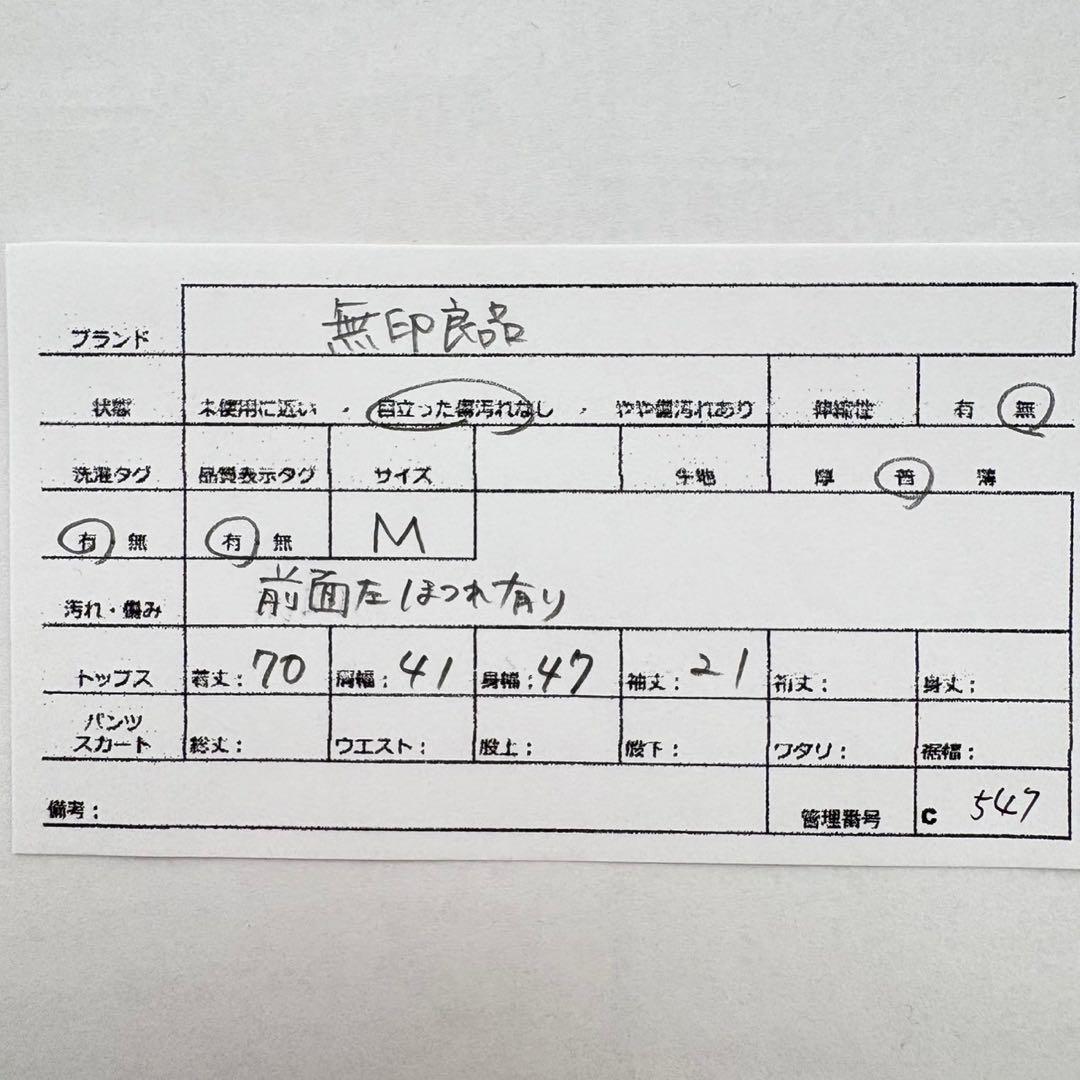 ブランド 無印良品
状態 未使用に近い ・ 目立った傷汚れなし ・ やや傷汚れあり 伸縮性 有 無
洗濯タグ 品質表示タグ サイズ 生地 厚 普 薄
有 無 有 無 M
汚れ・傷み 前面左ほつれ有り
トップス 着丈：70 肩幅：41 身幅：47 袖丈：21 裄丈： 身丈：
パンツ
スカート 総丈： ウエスト： 股上： 股下： ワタリ： 裾幅：
備考： 管理番号 C 547